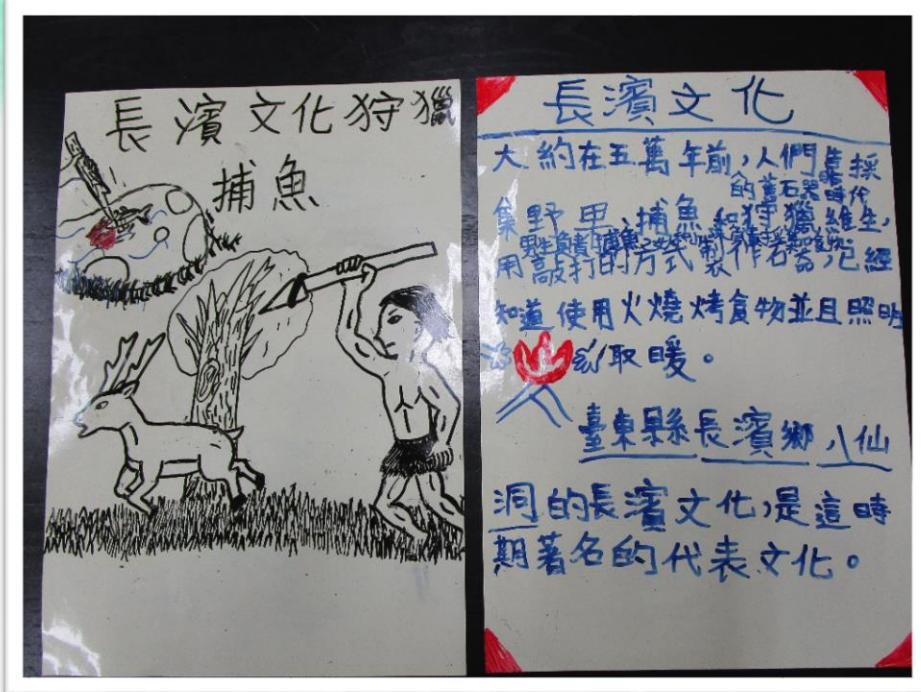 長濱文化狩獵
捕魚
長濱文化
大約在五萬年前,人們靠採
的舊石器時代
集野果、捕魚和狩獵維生,
男生負責捕魚
用敲打的方式製作石器,已經
知道使用火燒烤食物並且照明
取暖。
臺東縣長濱鄉八仙
洞的長濱文化,是這時
期著名的代表文化。